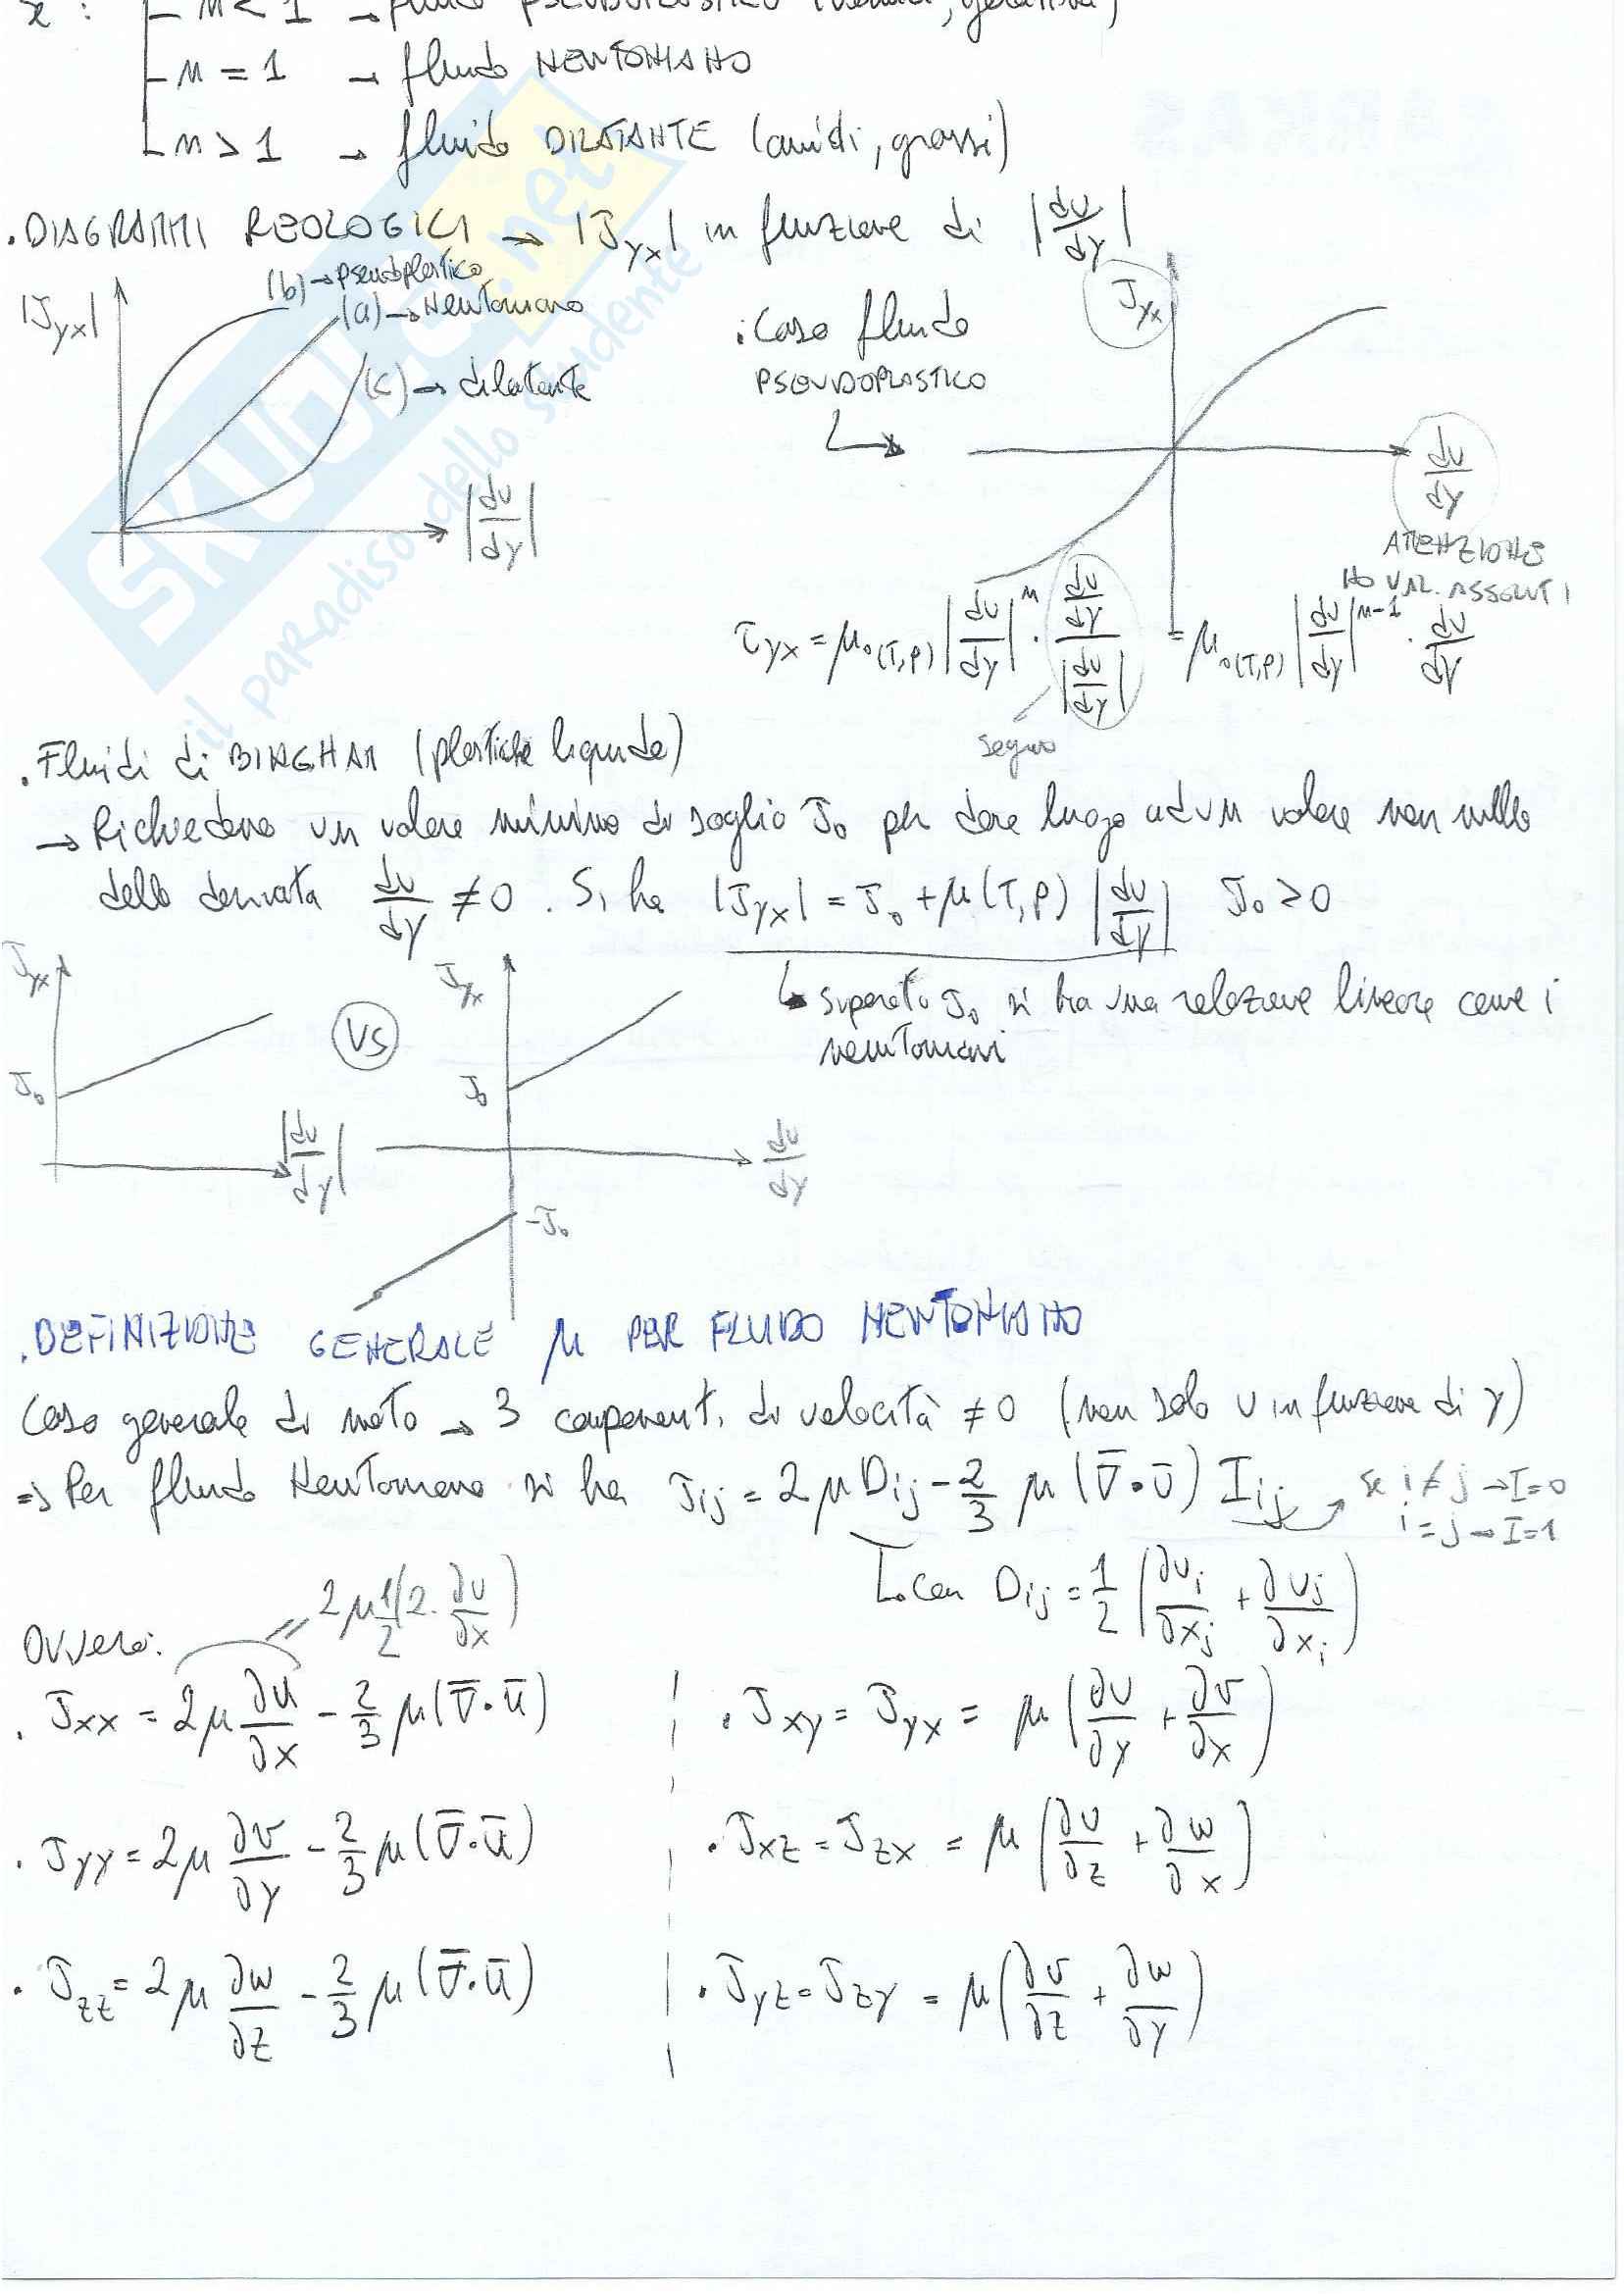 - n < 1 → fluido PSEUDOPLASTICO (
- n = 1 → fluido NEWTONIANO
- n > 1 → fluido DILATANTE (amidi, grassi)
. DIAGRAMMI REOLOGICI → |τyx| in funzione di |du/dy|
|τyx|
(b) → pseudoplastico
(a) → Newtoniano
(c) → dilatante
|du/dy|
: Caso fluido
PSEUDOPLASTICO
τyx
du/dy
ATTENZIONE
NO VAL. ASSOLUTI
τyx = μo(T,P) |du/dy|^n · (du/dy)/|du/dy| = μo(T,P) |du/dy|^n-1 · du/dy
segno
. Fluidi di BINGHAM (plastiche liquide)
→ Richiedono un valore minimo di soglia τo per dare luogo ad un valore non nullo
della derivata du/dy ≠ 0 . Si ha |τyx| = τo + μ(T,P) |du/dy| τo > 0
↳ superato τo si ha una relazione lineare come i
newtoniani
τyx
τo
|du/dy|
VS
τyx
τo
du/dy
-τo
. DEFINIZIONE GENERALE μ PER FLUIDO NEWTONIANO
Caso generale di moto → 3 componenti di velocità ≠ 0 (non solo u in funzione di y)
⇒ Per fluido Newtoniano si ha τij = 2μDij - 2/3 μ (∇̄ • ū) Iij
se i ≠ j → I=0
i = j → I=1
↳ con Dij = 1/2 (∂ui/∂xj + ∂uj/∂xi)
Ovvero:
2μ 1/2 (2 · ∂u/∂x)
. τxx = 2μ ∂u/∂x - 2/3 μ(∇̄ · ū)
. τxy = τyx = μ (∂u/∂y + ∂v/∂x)
. τyy = 2μ ∂v/∂y - 2/3 μ(∇̄ · ū)
. τxz = τzx = μ (∂u/∂z + ∂w/∂x)
. τzz = 2μ ∂w/∂z - 2/3 μ(∇̄ · ū)
. τyz = τzy = μ (∂v/∂z + ∂w/∂y)
SKUOLA.net
il paradiso dello studente